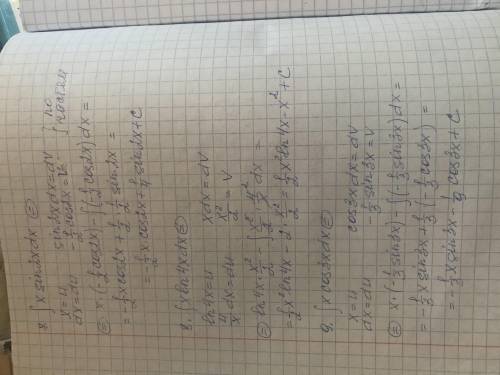 7. ∫ x sin2x dx ⊜
x = u      sin2x dx = dv
dx = du      -1/2 cos2x = v      ∫ по частям
⊜ x·(-1/2 cos2x) - ∫(-1/2 cos2x)dx =
= -1/2 x cos2x + 1/2 · 1/2 sin2x =
= -1/2 x cos2x + 1/4 sin2x + C
8. ∫ x ln4x dx ⊜
ln4x = u      x dx = dv
4/x dx = du      x²/2 = v
⊜ ln4x · x²/2 - ∫ x²/2 · 4/x dx =
= 1/2 x² ln4x - 2 · x²/2 = 1/2 x² ln4x - x² + C
9. ∫ x cos3x dx ⊜
x = u      cos3x dx = dv
dx = du      -1/3 sin3x = v
⊜ x·(-1/3 sin3x) - ∫(-1/3 sin3x)dx =
= -1/3 x sin3x + 1/3 (-1/3 cos3x) =
= -1/3 x sin3x - 1/9 cos3x + C